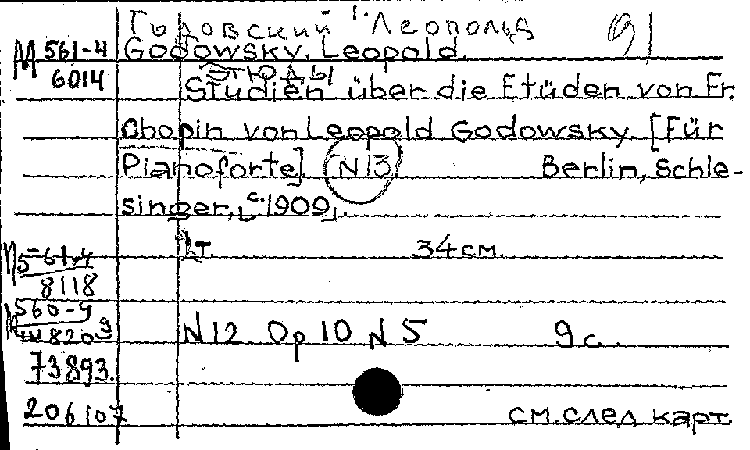 Годовский Леопольд 91
М 561-4 Godowsky, Leopold.
6014 Этюды
Studien über die Etüden von Fr.
Chopin von Leopold Godowsky. [Für
Pianoforte] N13 Berlin, Schle-
singer, [c. 1909].
т. 34 см.
561-4
8118
560-9
N12 Op 10 N 5 9 с.
73893.
206107 см. след карт.